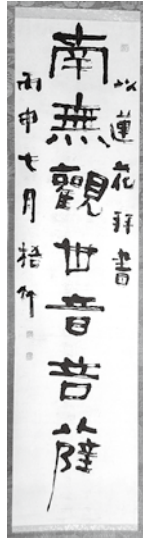 以蓮花拜書
南無觀世音菩薩
丙申七月梧竹